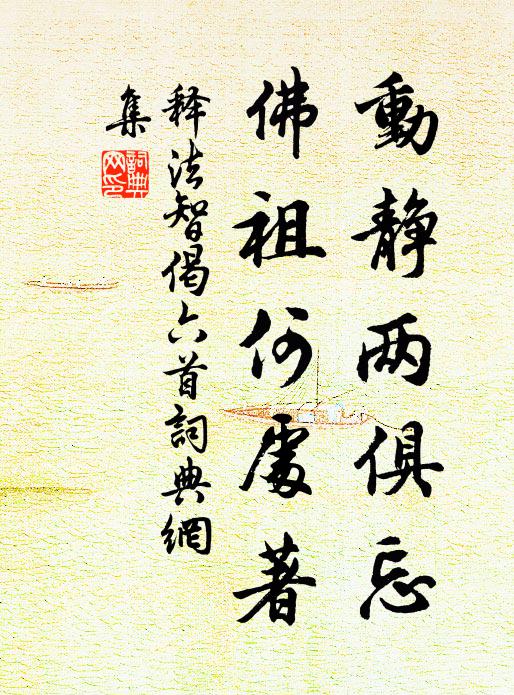 動靜两俱忘
佛祖何處著
释法智偈六首詞典網
集
詞典
网印